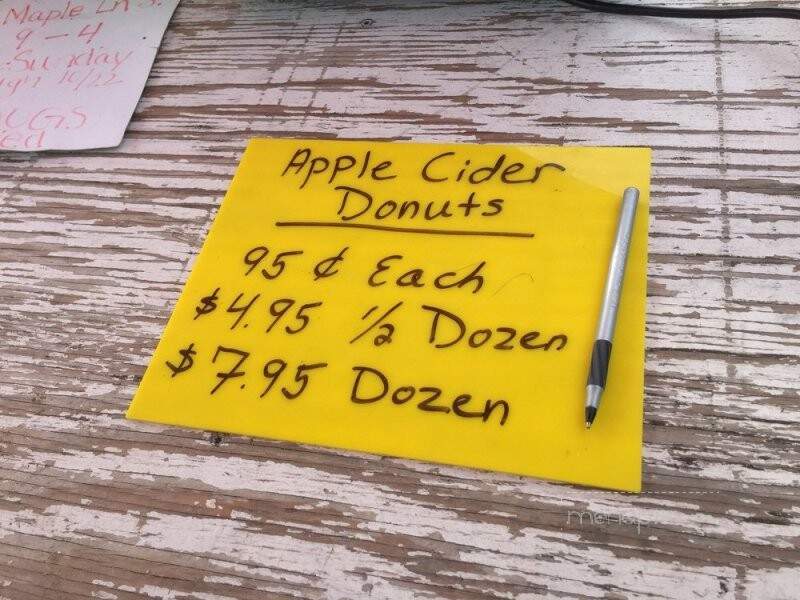 Maple Ln
9-4
Sunday
10/22
Apple Cider
Donuts
95¢ Each
$4.95 1/2 Dozen
$7.95 Dozen